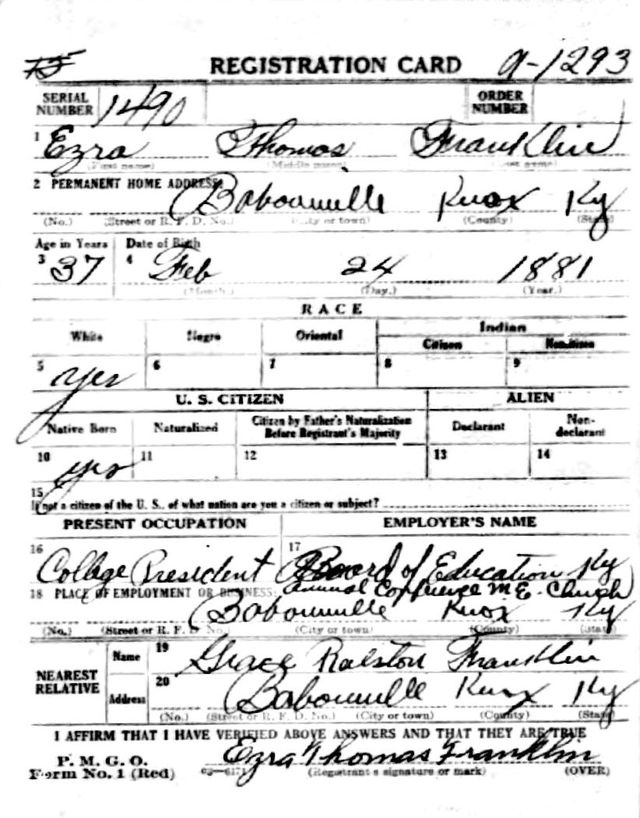 75 REGISTRATION CARD 9-1293
SERIAL NUMBER 1490 ORDER NUMBER
1 Ezra Thomas Franklin
(First name) (Middle name) (Last name)
2 PERMANENT HOME ADDRESS:
Babourville Knox Ky
(No.) (Street or R. F. D. No.) (City or town) (County) (State)
Age in Years Date of Birth
3 37 4 Feb 24 1881
(Month.) (Day.) (Year.)
RACE
White Negro Oriental Indian
Citizen Noncitizen
5 yes 6 7 8 9
U. S. CITIZEN ALIEN
Native Born Naturalized Citizen by Father's Naturalization Before Registrant's Majority Declarant Non-declarant
10 yes 11 12 13 14
15
If not a citizen of the U. S., of what nation are you a citizen or subject?
PRESENT OCCUPATION EMPLOYER'S NAME
16 College President 17 Board of Education Ky
Annual Conference M.E. Church
18 PLACE OF EMPLOYMENT OR BUSINESS:
Babourville Knox Ky
(No.) (Street or R. F. D. No.) (City or town) (County) (State)
NEAREST RELATIVE Name 19 Grace Ralston Franklin
Address 20 Babourville Knox Ky
(No.) (Street or R. F. D. No.) (City or town) (County) (State)
I AFFIRM THAT I HAVE VERIFIED ABOVE ANSWERS AND THAT THEY ARE TRUE
P. M. G. O.
Form No. 1 (Red) 03-6171 Ezra Thomas Franklin
(Registrant's signature or mark) (OVER)